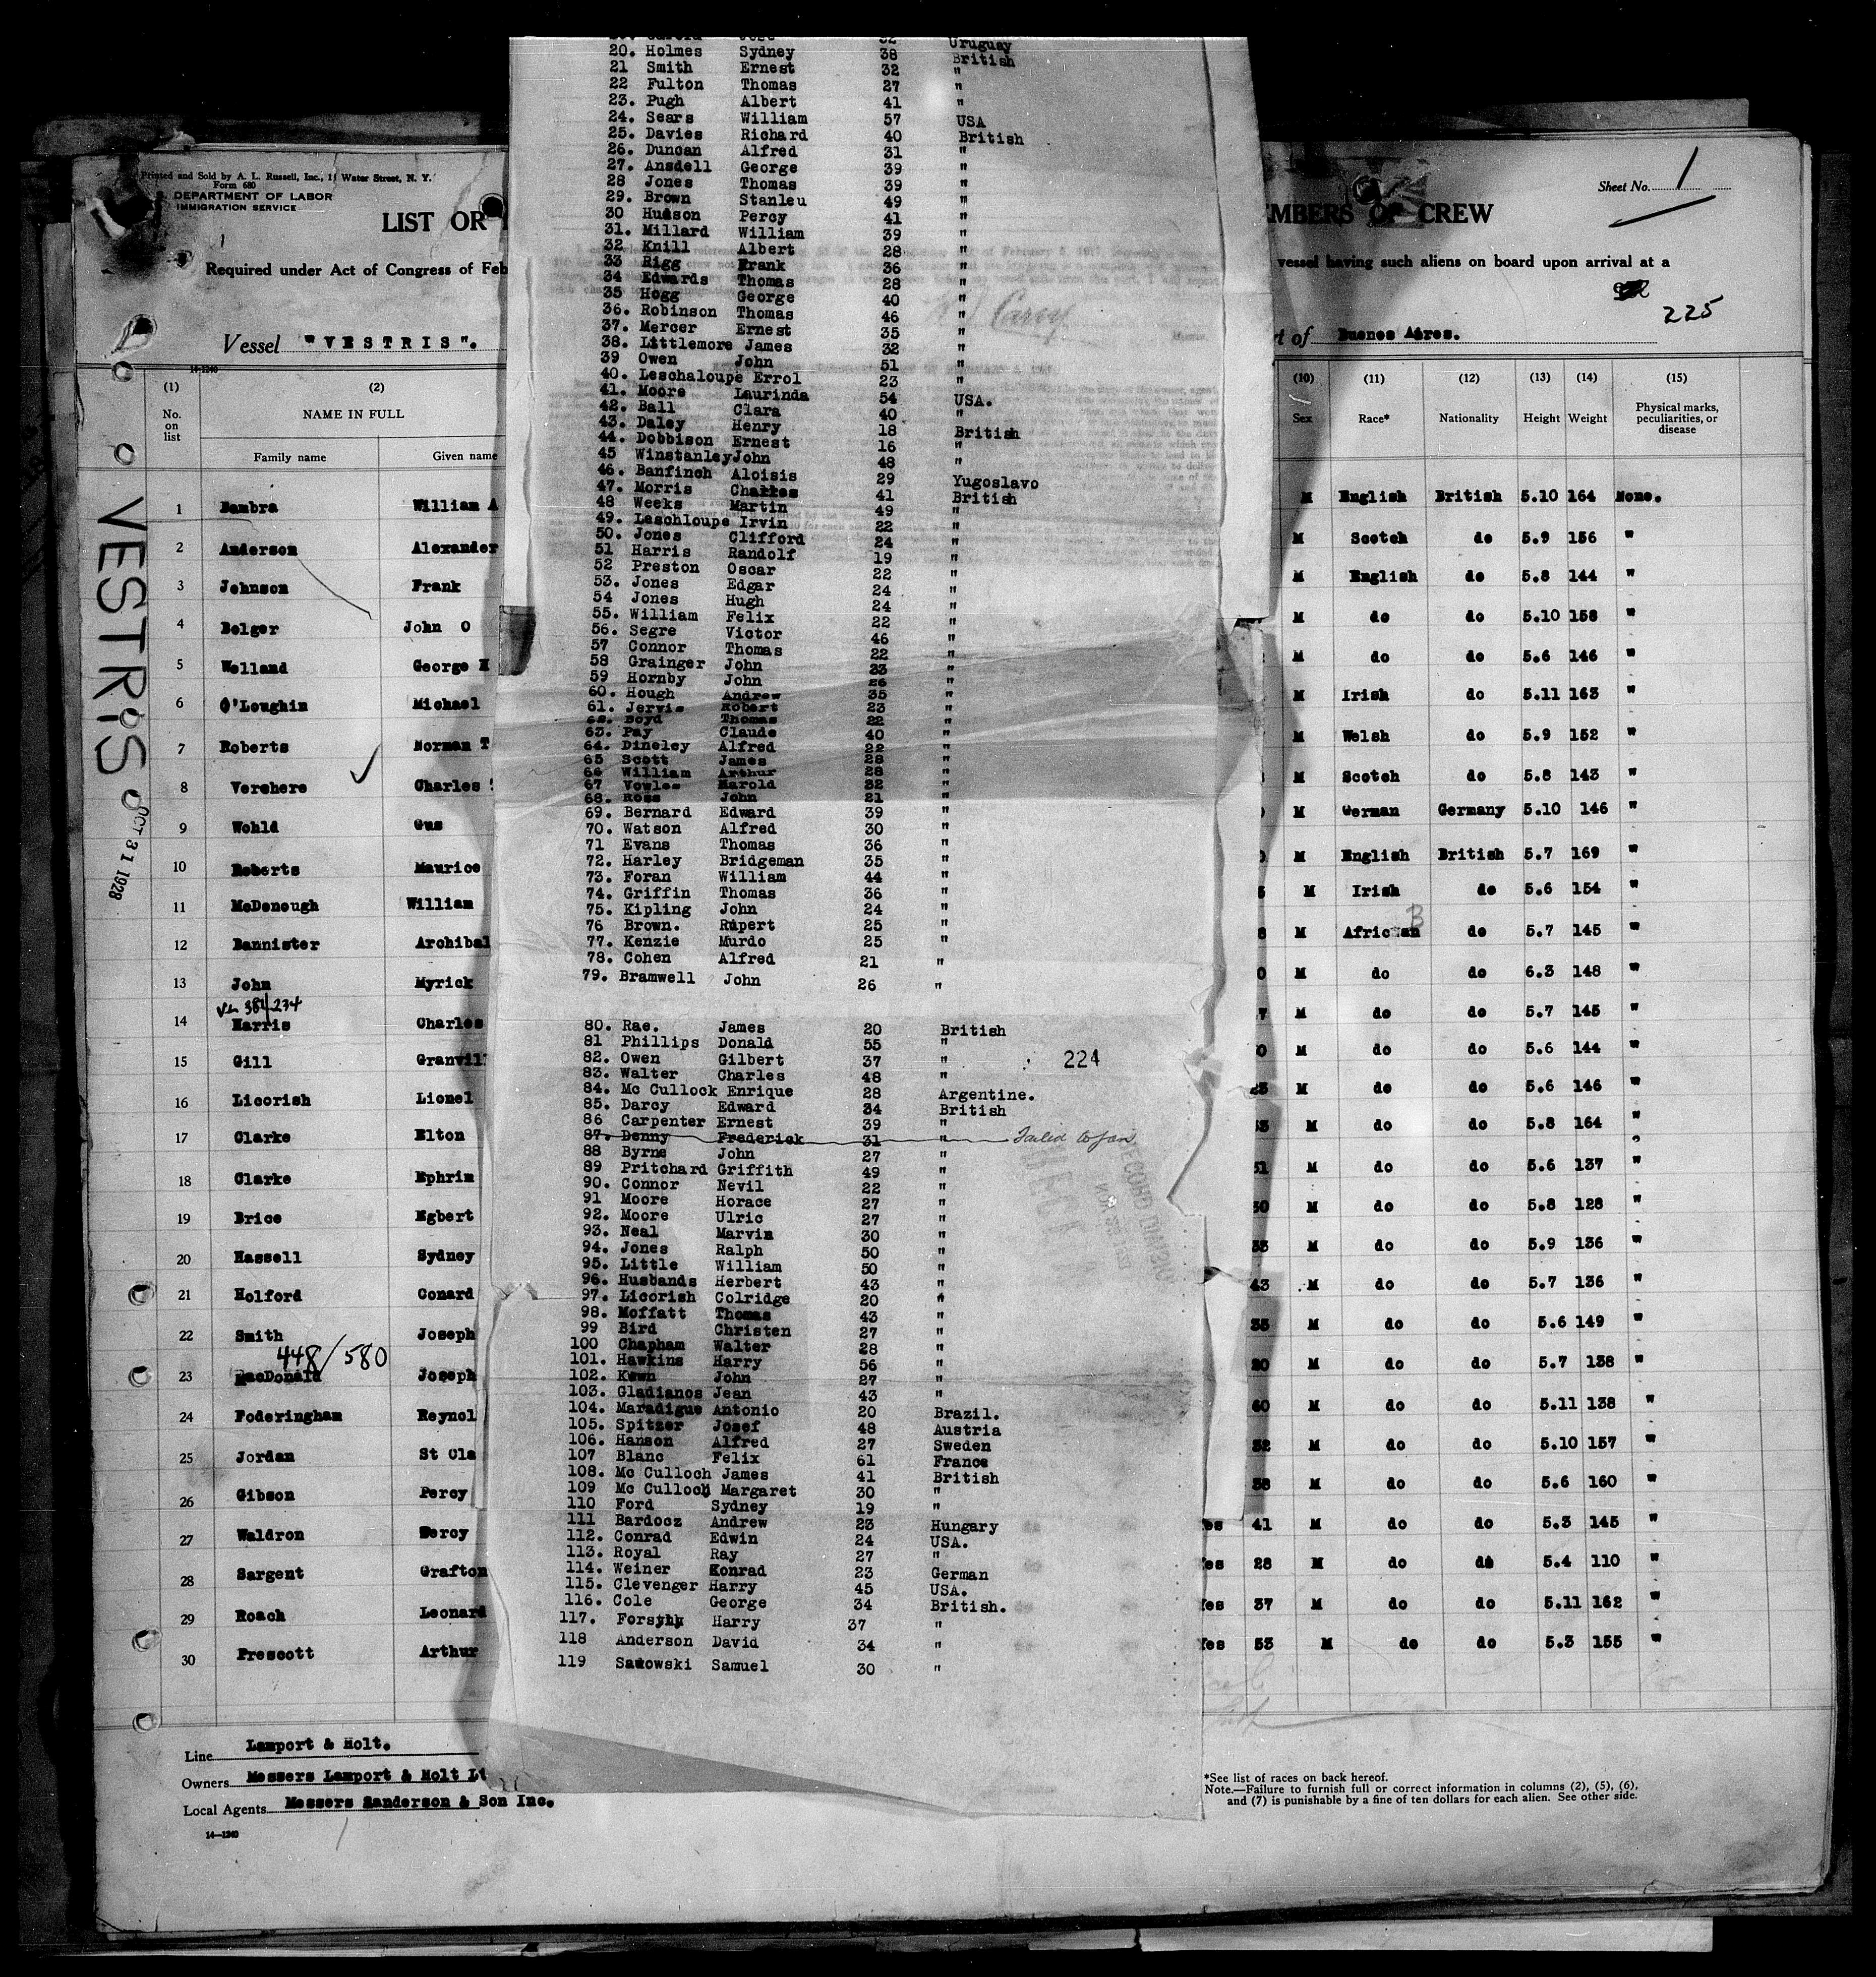 Printed and Sold by A. L. Russell, Inc., 11 Water Street, N. Y.
Form 680
DEPARTMENT OF LABOR
IMMIGRATION SERVICE
LIST OR
Required under Act of Congress of Feb
Vessel "VESTRIS".
14-1240
(1) (2)
No. on list
NAME IN FULL
Family name Given name
VESTRIS
OCT 31 1928
1 Bambra William A
2 Anderson Alexander
3 Johnson Frank
4 Bolger John O
5 Welland George H
6 O'Loughin Michael
7 Roberts Norman T
8 Verehere Charles
9 Wohld Gus
10 Roberts Maurice
11 McDonough William
12 Bannister Archibal
13 John Myrick
381/234
14 Harris Charles
15 Gill Granvill
16 Licorish Lionel
17 Clarke Elton
18 Clarke Ephrim
19 Brice Egbert
20 Hassell Sydney
21 Holford Conard
22 Smith Joseph
448/580
23 MacDonald Joseph
24 Foderingham Reynol
25 Jordan St Cla
26 Gibson Percy
27 Waldron Percy
28 Sargent Grafton
29 Roach Leonard
30 Prescott Arthur
Line Lamport & Holt.
Owners Messers Lamport & Holt Lt
Local Agents Messers Sanderson & Son Inc.
14-1240
Uruguay
20. Holmes Sydney 38 British
21 Smith Ernest 32 "
22 Fulton Thomas 27 "
23. Pugh Albert 41 "
24. Sears William 57 USA
25. Davies Richard 40 British
26. Duncan Alfred 31 "
27. Ansdell George 39 "
28 Jones Thomas 39 "
29. Brown Stanleu 49 "
30 Hudson Percy 41 "
31. Millard William 39 "
32 Knill Albert 28 "
33 Rigg Frank 36 "
34 Edwards Thomas 28 "
35 Hogg George 40 "
36. Robinson Thomas 46 "
37. Mercer Ernest 35 "
38. Littlemore James 32 "
39 Owen John 51 "
40. Leschaloupe Errol 23 "
41. Moore Laurinda 54 USA.
42. Ball Clara 40 "
43. Daley Henry 18 British
44. Dobbison Ernest 16 "
45 Winstanley John 48 "
46. Banfinch Aloisis 29 Yugoslavo
47. Morris Charles 41 British
48 Weeks Martin 49 "
49. Leschloupe Irvin 22 "
50. Jones Clifford 24 "
51 Harris Randolf 19 "
52 Preston Oscar 22 "
53. Jones Edgar 24 "
54 Jones Hugh 24 "
55. William Felix 22 "
56. Segre Victor 46 "
57 Connor Thomas 22 "
58 Grainger John 23 "
59 Hornby John 26 "
60. Hough Andrew 35 "
61. Jervis Robert 23 "
62. Boyd Thomas 22 "
63. Pay Claude 40 "
64. Dineley Alfred 22 "
65 Scott James 28 "
66 William Arthur 28 "
67 Vowles Harold 32 "
68. Ross John 21 "
69. Bernard Edward 39 "
70. Watson Alfred 30 "
71 Evans Thomas 36 "
72. Harley Bridgeman 35 "
73. Foran William 44 "
74. Griffin Thomas 36 "
75. Kipling John 24 "
76 Brown. Rupert 25 "
77. Kenzie Murdo 25 "
78. Cohen Alfred 21 "
79. Bramwell John 26 "
80. Rae. James 20 British
81 Phillips Donald 55 "
82. Owen Gilbert 37 " 224
83. Walter Charles 48 "
84. Mc Cullock Enrique 28 Argentine.
85. Darcy Edward 34 British
86 Carpenter Ernest 39 "
87. Denny Frederick 31 " Failed to join
88 Byrne John 27 "
89 Pritchard Griffith 49 "
90. Connor Nevil 22 "
91 Moore Horace 27 "
92. Moore Ulric 27 "
93. Neal Marvin 30 "
94. Jones Ralph 50 "
95. Little William 50 "
96. Husbands Herbert 43 "
97. Licorish Colridge 20 "
98. Moffatt Thomas 43 "
99 Bird Christen 27 "
100 Chapham Walter 28 "
101. Hawkins Harry 56 "
102. Kewn John 27 "
103. Gladianos Jean 43 "
104. Maradigue Antonio 20 Brazil.
105. Spitzer Josef 48 Austria
106. Hanson Alfred 27 Sweden
107 Blanc Felix 61 France
108. Mc Culloch James 41 British
109 Mc Culloch Margaret 30 "
110 Ford Sydney 19 "
111 Bardocz Andrew 23 Hungary
112. Conrad Edwin 24 USA.
113. Royal Ray 27 "
114. Weiner Konrad 23 German
115. Clevenger Harry 45 USA.
116. Cole George 34 British.
117. Forsyhh Harry 37 "
118 Anderson David 34 "
119 Sadowski Samuel 30 "
Sheet No. 1
EMBERS OF CREW
vessel having such aliens on board upon arrival at a
225
rt of Buenos Aires.
(10) (11) (12) (13) (14) (15)
Sex Race* Nationality Height Weight Physical marks, peculiarities, or disease
M English British 5.10 164 None.
M Scotch do 5.9 156 "
M English do 5.8 144 "
M do do 5.10 158 "
M do do 5.6 146 "
M Irish do 5.11 163 "
M Welsh do 5.9 152 "
M Scotch do 5.8 143 "
M German Germany 5.10 146 "
M English British 5.7 169 "
M Irish do 5.6 154 "
B
8 M African do 5.7 145 "
0 M do do 6.3 148 "
7 M do do 5.7 145 "
0 M do do 5.6 144 "
M do do 5.6 146 "
M do do 5.8 164 "
51 M do do 5.6 137 "
M do do 5.8 128 "
33 M do do 5.9 136 "
43 M do do 5.7 136 "
35 M do do 5.6 149 "
20 M do do 5.7 138 "
60 M do do 5.11 138 "
32 M do do 5.10 157 "
38 M do do 5.6 160 "
es 41 M do do 5.3 145 "
es 28 M do do 5.4 110 "
es 37 M do do 5.11 162 "
Yes 53 M do do 5.3 155 "
*See list of races on back hereof.
Note.—Failure to furnish full or correct information in columns (2), (5), (6),
and (7) is punishable by a fine of ten dollars for each alien. See other side.